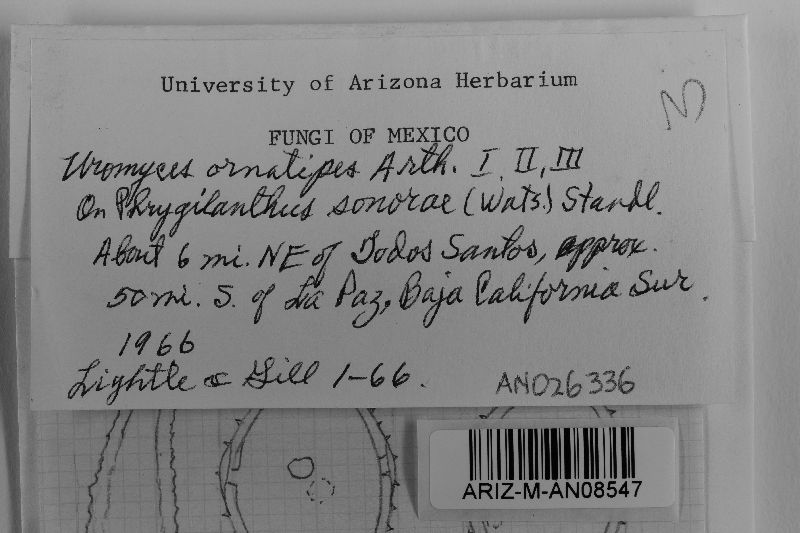 University of Arizona Herbarium
FUNGI OF MEXICO
Uromyces ornatipes Arth. I, II, III
On Phrygilanthus sonorae (Wats.) Standl.
About 6 mi. NE of Todos Santos, approx.
50 mi. S. of La Paz, Baja California Sur.
1966
Lightle & Gill 1-66.
AN026336
ARIZ-M-AN08547